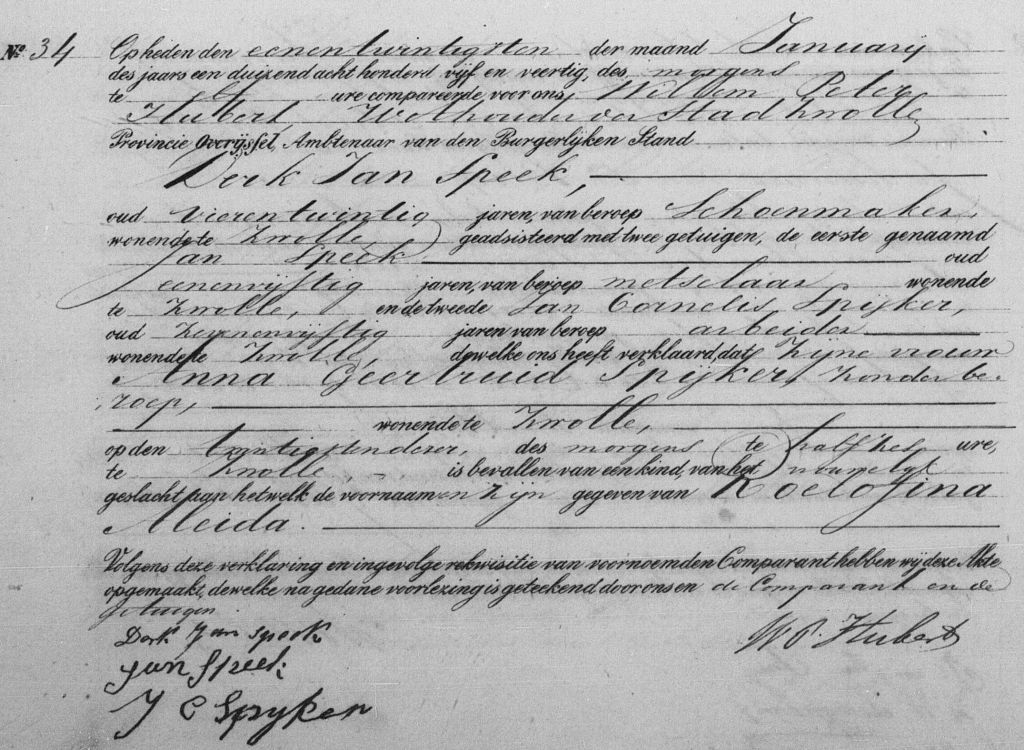 No. 34 Op heden den eenentwintigsten der maand Januarij
des jaars een duizend acht honderd vijf en veertig, des morgens
te elf ure compareerde voor ons, Willem Peter
Hubert, Wethouder der Stad Zwolle
Provincie Overijssel, Ambtenaar van den Burgerlijken Stand
Derk Jan Speek,
oud vierentwintig jaren, van beroep Schoenmaker,
wonende te Zwolle, geadsisteerd met twee getuigen, de eerste genaamd
Jan Speek oud
eenenvijftig jaren, van beroep metselaar wonende
te Zwolle, en de tweede Jan Cornelis Spijker,
oud zevenenvijftig jaren van beroep arbeider
wonende te Zwolle, dewelke ons heeft verklaard dat zijne vrouw
Anna Geertruid Spijker, zonder be-
roep,
wonende te Zwolle,
op den twintigsten dezer, des morgens te half ure,
te Zwolle is bevallen van een kind, van het vrouwelijk
geslacht aan hetwelk de voornaamen zijn gegeven van Roelofina
Aleida.
Volgens deze verklaring en ingevolge rekwisitie van voornoemden Comparant hebben wij deze Akte
opgemaakt, dewelke na gedane voorlezing is geteekend door ons en de Comparant en de
getuigen
Derk Jan Speek W. P. Hubert
Jan Speek
J C Spyker